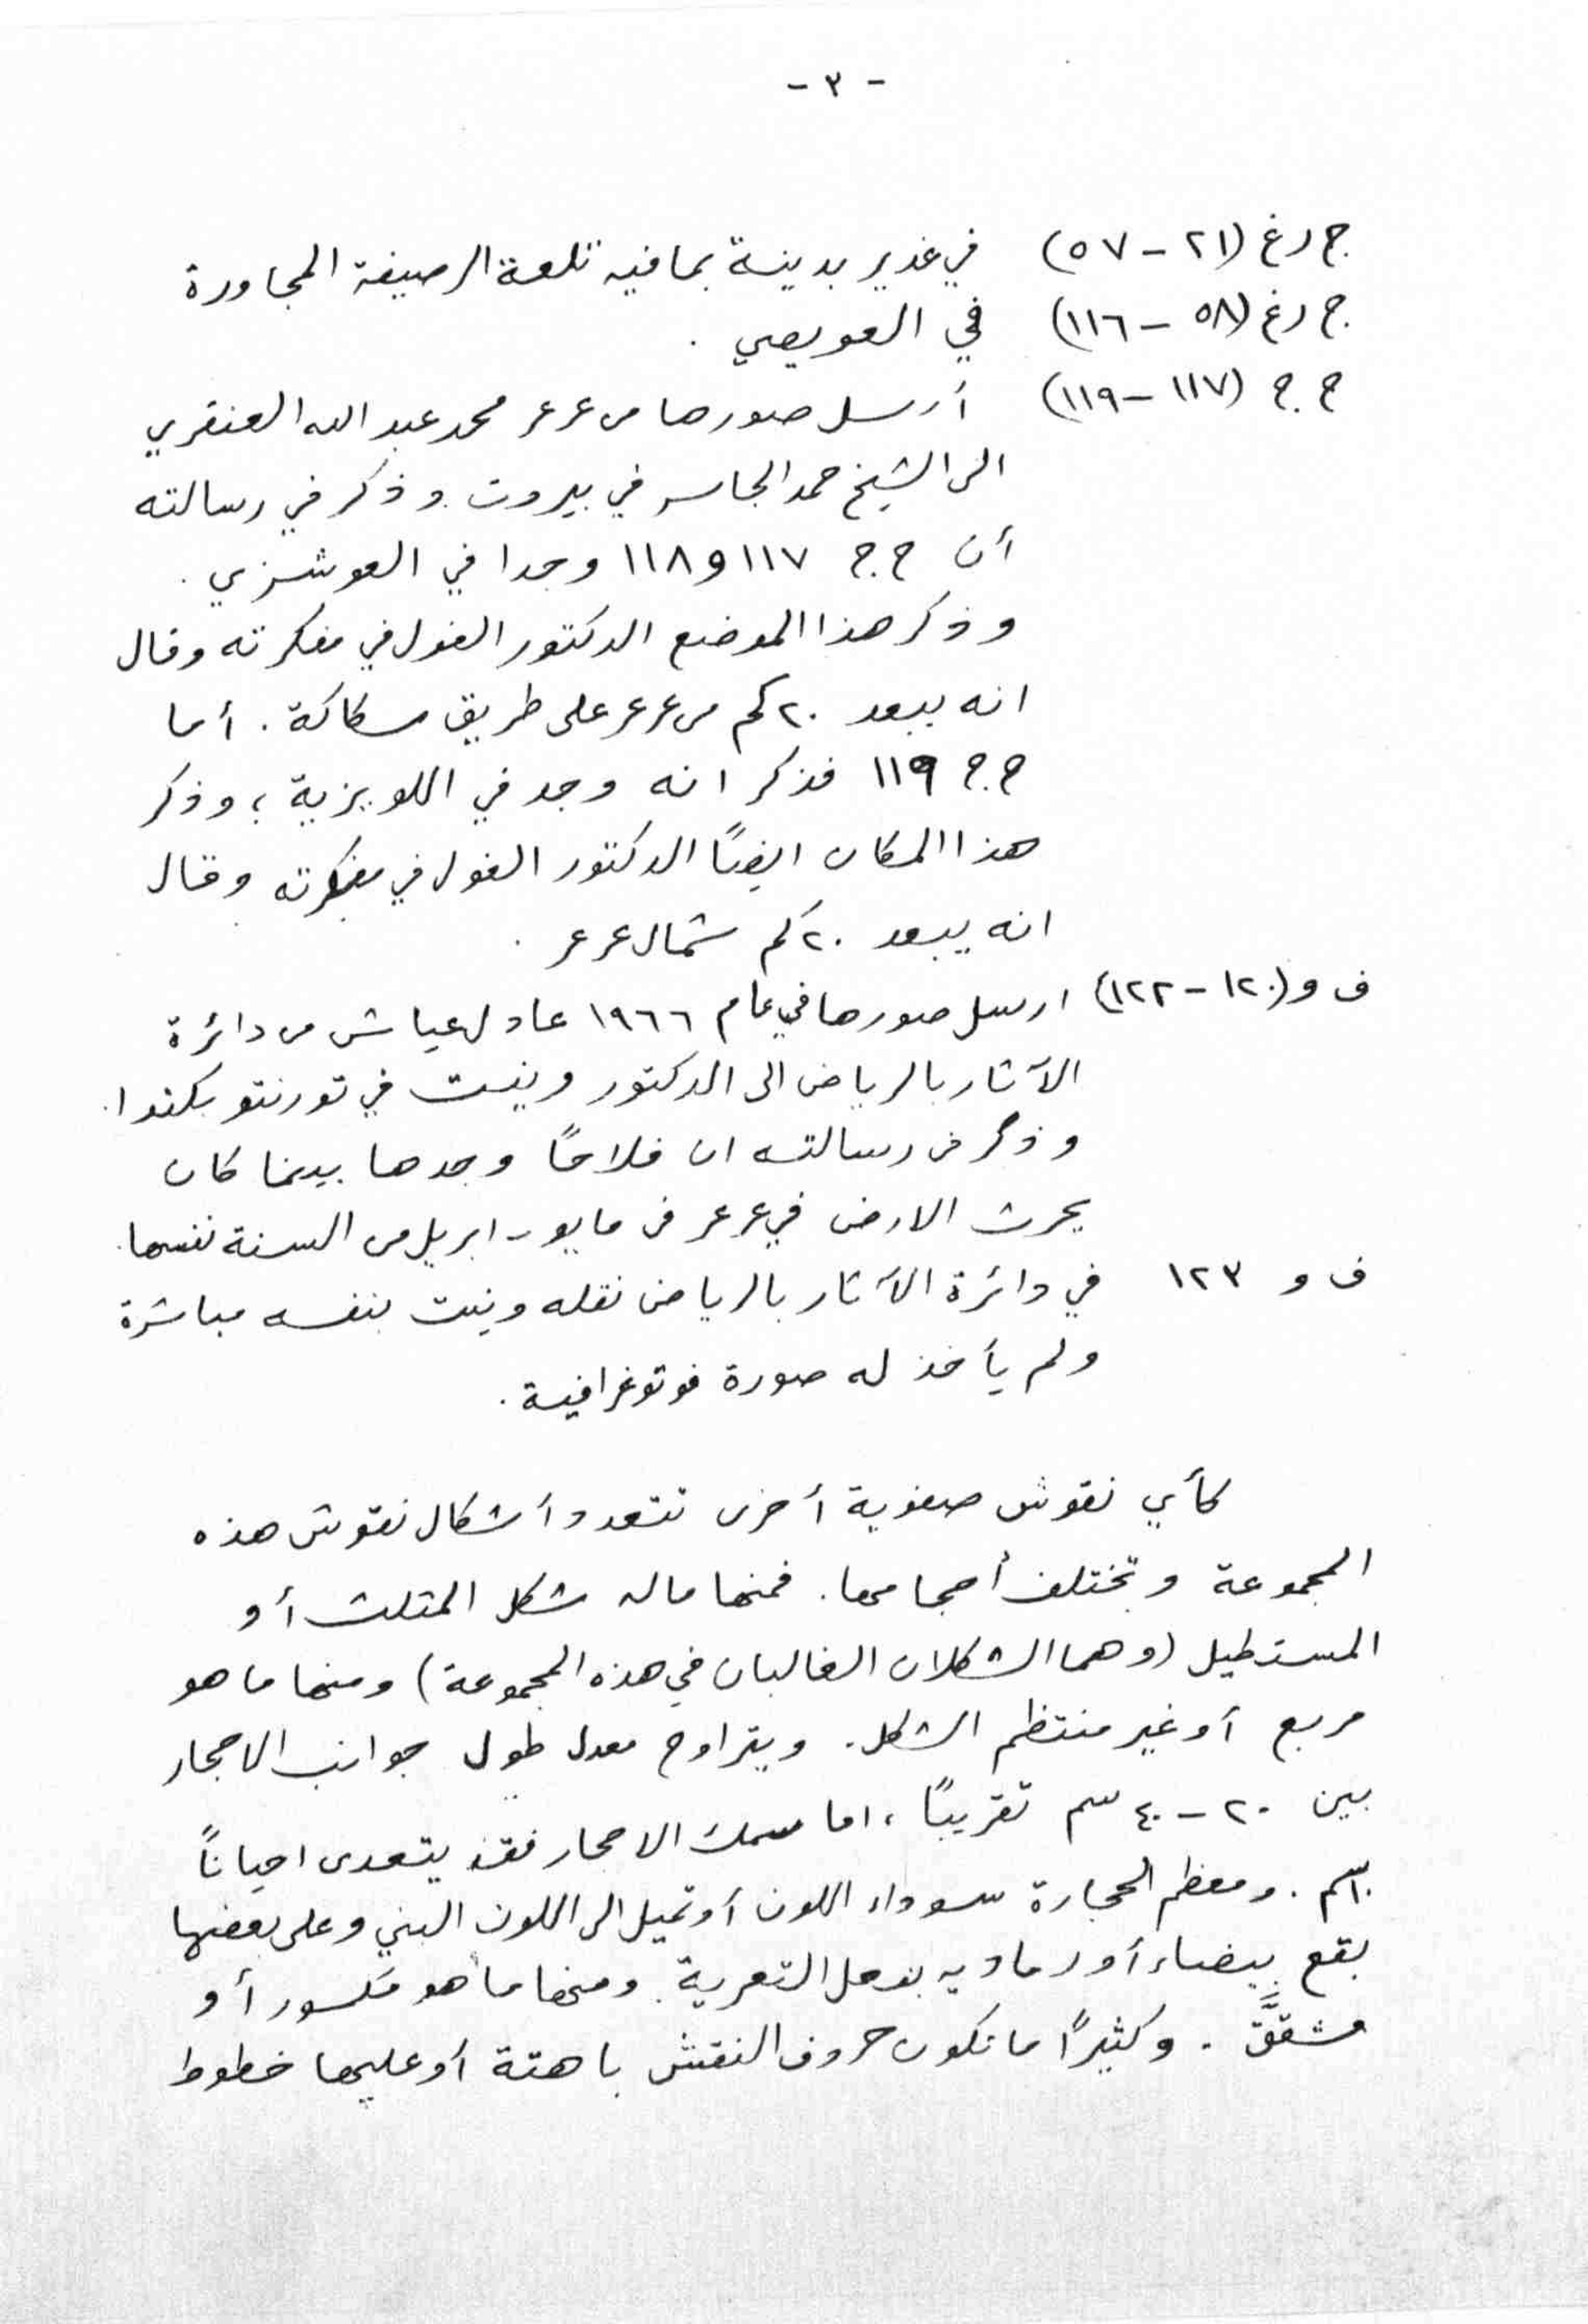 - ٣ -
ج ر غ (٢١ - ٥٧) في غدير بدينة بما فيه تلعة الرصيفة المجاورة
ج ر غ (٥٨ - ١١٦) في العويصي .
ح ج (١١٧ - ١١٩) أرسل صورها من عرعر محمد عبد الله العنقري
الى الشيخ حمد الجاسر في بيروت . وذكر في رسالته
أن ح ج ١١٧ و ١١٨ وجدا في العوشزي .
وذكر هذا الموضع الدكتور الغول في مفكرته وقال
انه يبعد ٢٠ كم من عرعر على طريق سكاكة . أما
ح ج ١١٩ فذكر انه وجد في اللويزية ؛ وذكر
هذا المكان ايضًا الدكتور الغول في مفكرته وقال
انه يبعد ٢٠ كم شمال عرعر .
ف و (١٢٠ - ١٢٢) ارسل صورها في عام ١٩٦٦ عادل عياش من دائرة
الآثار بالرياض الى الدكتور وينت في تورنتو بكندا .
وذكر في رسالته ان فلاحًا وجدها بينما كان
يحرث الارض في عرعر في مايو - ابريل من السنة نفسها .
ف و ١٢٣ في دائرة الآثار بالرياض نقله وينت بنفسه مباشرة
ولم يأخذ له صورة فوتوغرافية .
كأي نقوش صفوية أخرى تتعدد أشكال نقوش هذه
المجموعة وتختلف أحجامها . فمنها ماله شكل المثلث أو
المستطيل (وهما الشكلان الغالبان في هذه المجموعة) ومنها ما هو
مربع أو غير منتظم الشكل . ويتراوح معدل طول جوانب الاحجار
بين ٢٠ - ٤٠ سم تقريبًا ، اما سمك الاحجار فقد يتعدى احيانًا
١٠ سم . ومعظم الحجارة سوداء اللون أو تميل الى اللون البني وعلى بعضها
بقع بيضاء أو رمادية بفعل التعرية . ومنها ما هو مكسور أو
مشقَّق . وكثيرًا ما تكون حروف النقش باهتة أو عليها خطوط